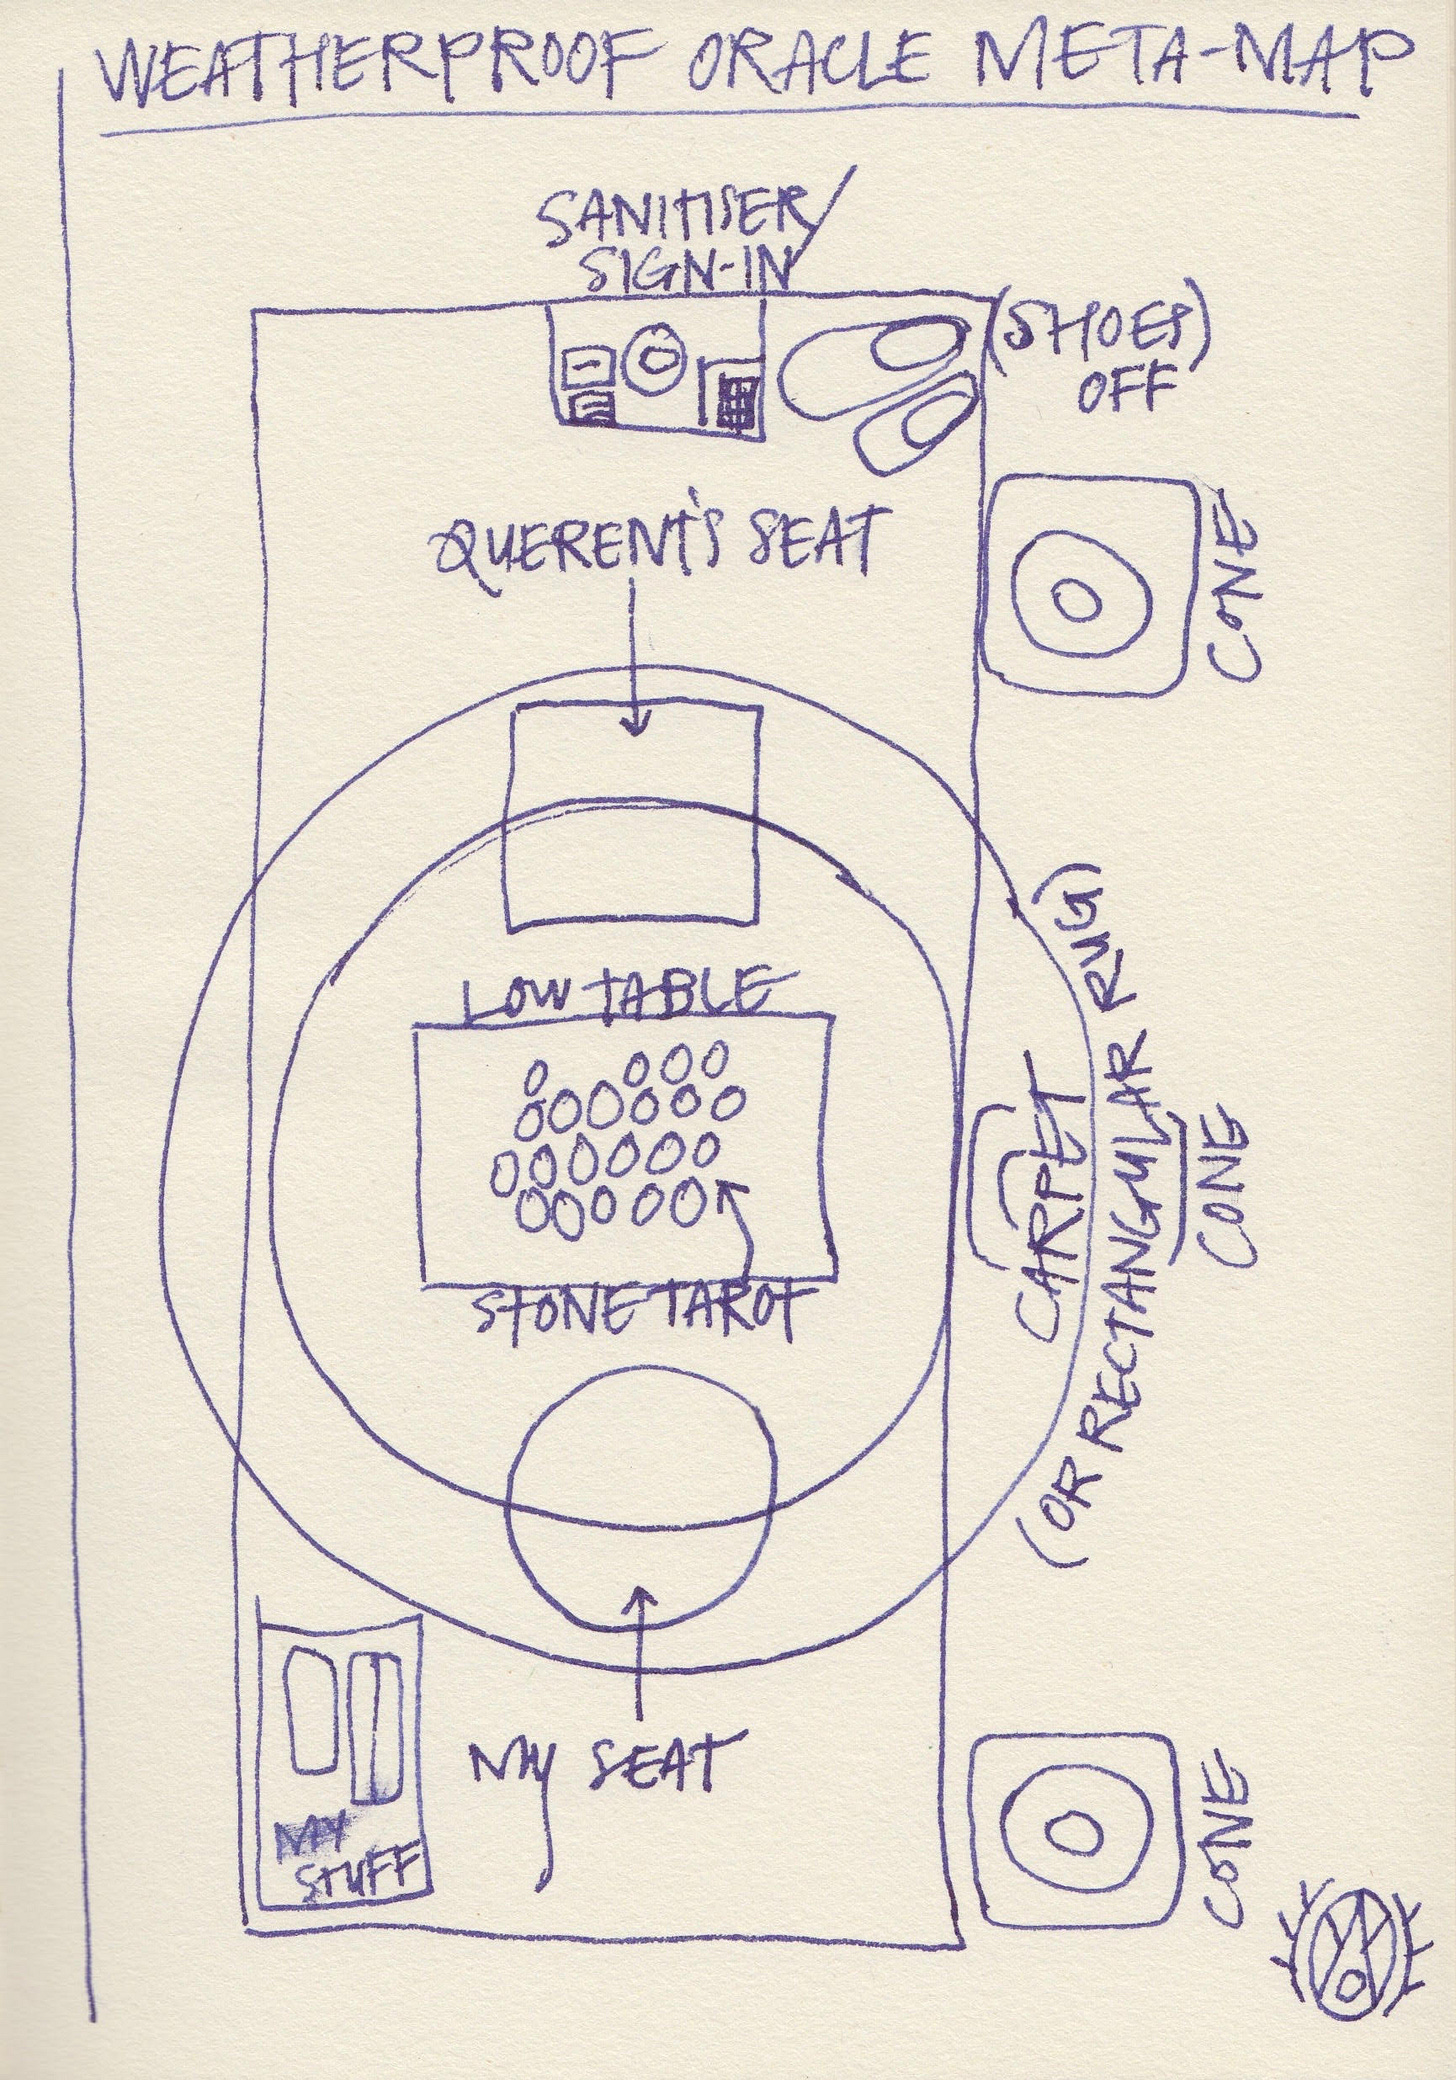 WEATHERPROOF ORACLE META-MAP
SANITISER/
SIGN-IN
(SHOES)
OFF
QUERENT'S SEAT
CONE
LOW TABLE
STONE TAROT
CARPET
(OR RECTANGULAR RUG)
CONE
MY SEAT
MY
STUFF
CONE